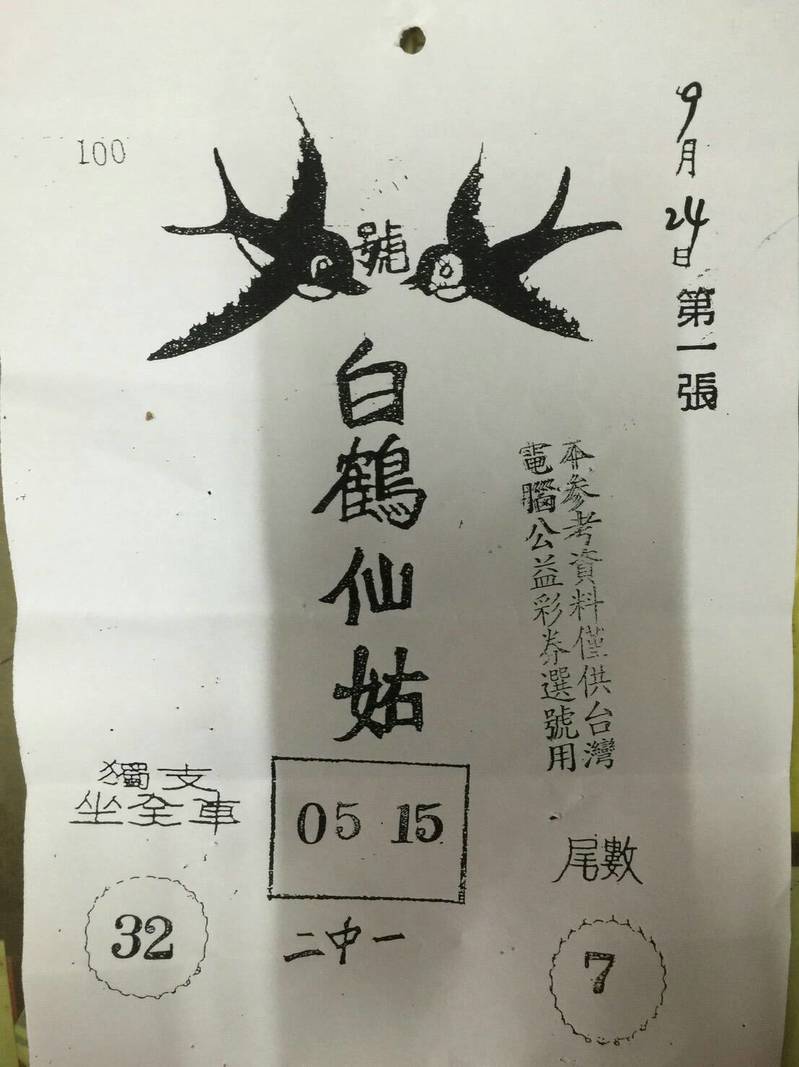 100
號
9月24日第一張
白鶴仙姑
本參考資料僅供台灣
電腦公益彩券選號用
獨支
坐全車
32
05 15
二中一
尾數
7